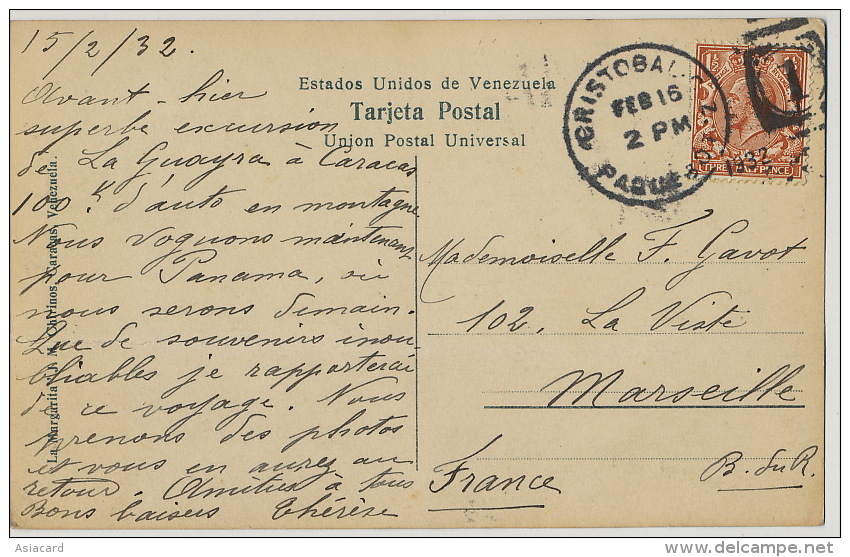 15/2/32.
Avant-hier
superbe excursion
de La Guayra à Caracas
100 K d'auto en montagne
Nous voguons maintenant
pour Panama, où
nous serons demain.
Que de souvenirs inou-
bliables je rapporterai
de ce voyage. Nous
prenons des photos
et vous en aurez au
retour. Amitiés à tous
Bons baisers Thérèse
La Margarita J. M. Chirinos, Caracas, Venezuela.
Estados Unidos de Venezuela
Tarjeta Postal
Union Postal Universal
CRISTOBAL, C.Z.
FEB 16
2 PM
1932
1
Mademoiselle F. Gavot
102, La Viste
Marseille
B. du R.
France
Asiacard
http://www.delcampe.net